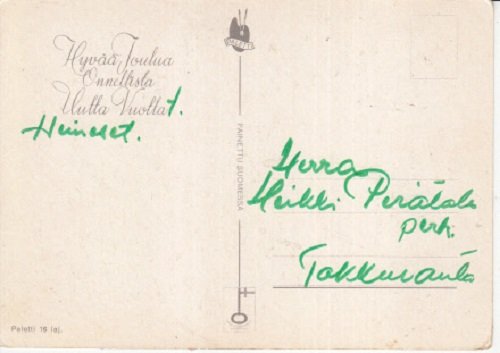 Hyvää Joulua
Onnellista
Uutta Vuotta t.
Heinoset.
PALETTI
PAINETTU SUOMESSA
Herra
Heikki Perätalo
perh.
Takkuranta
Paletti 19 laj.